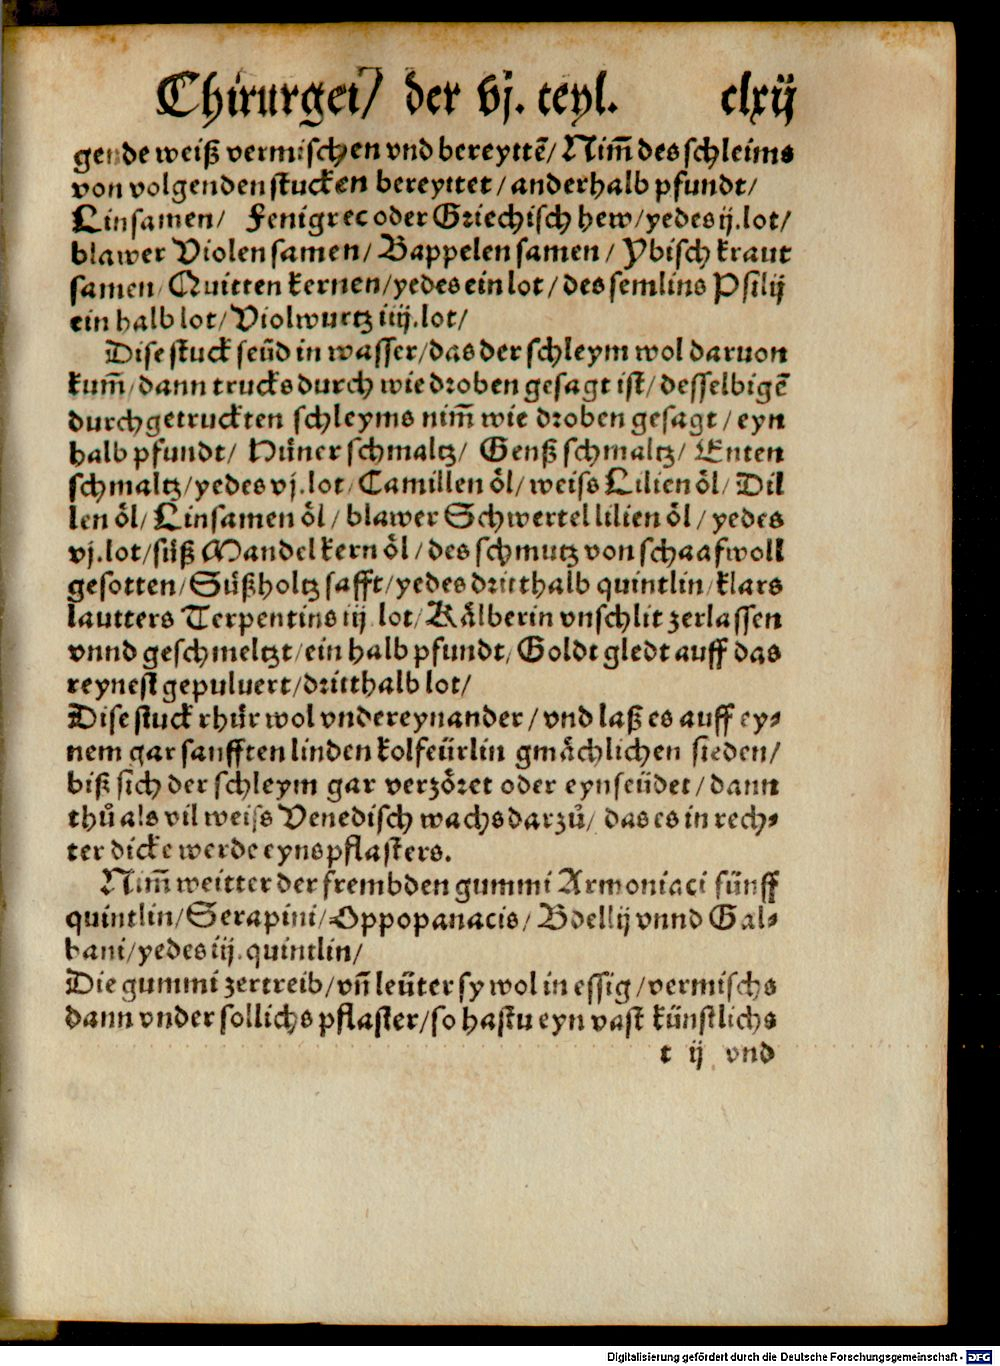 Chirurgei/ der vj. teyl. clxij
gende weiß vermischen vnd bereyttē/ Nim̄ des schleims
von volgenden stucken bereyttet/ anderhalb pfundt/
Linsamen/ Fenigrec oder Griechisch hew/ yedes ij. lot/
blawer Violen samen/ Bappelen samen/ Ybisch kraut
samen/ Quitten kernen/ yedes ein lot/ des semlins Psilij
ein halb lot/ Violwurtz iiij. lot/
Dise stuck seüd in wasser/ das der schleym wol daruon
kum̄/ dann trucks durch wie droben gesagt ist/ desselbigē
durchgetruckten schleyms nim̄ wie droben gesagt/ eyn
halb pfundt/ Hüner schmaltz/ Genß schmaltz/ Enten
schmaltz/ yedes vj. lot/ Camillen öl/ weiss Lilien öl/ Dil
len öl/ Linsamen öl/ blawer Schwertel lilien öl/ yedes
vj. lot/ süß Mandelkern öl/ des schmutz von schaafwoll
gesotten/ Süßholtz safft/ yedes dritthalb quintlin/ klars
lautters Terpentins iij lot/ Kälberin vnschlit zerlassen
vnnd geschmeltzt/ ein halb pfundt/ Goldt gledt auff das
reynest gepuluert/ dritthalb lot/
Dise stuck rhür wol vndereynander/ vnd laß es auff ey⸗
nem gar sanfften linden kolfeürlin gmächlichen sieden/
biß sich der schleym gar verzöret oder eynseüdet/ dann
thů als vil weiss Venedisch wachs darzů/ das es in rech⸗
ter dicke werde eyns pflasters.
Nim̄ weitter der frembden gummi Armoniaci fünff
quintlin/ Serapini/ Oppopanacis/ Bdellij vnnd Gal⸗
bani/ yedes iij. quintlin/
Die gummi zertreib/ vn̄ leüter sy wol in essig/ vermischs
dann vnder sollichs pflaster/ so hastu eyn vast künstlichs
t ij vnd
Digitalisierung gefördert durch die Deutsche Forschungsgemeinschaft - DFG